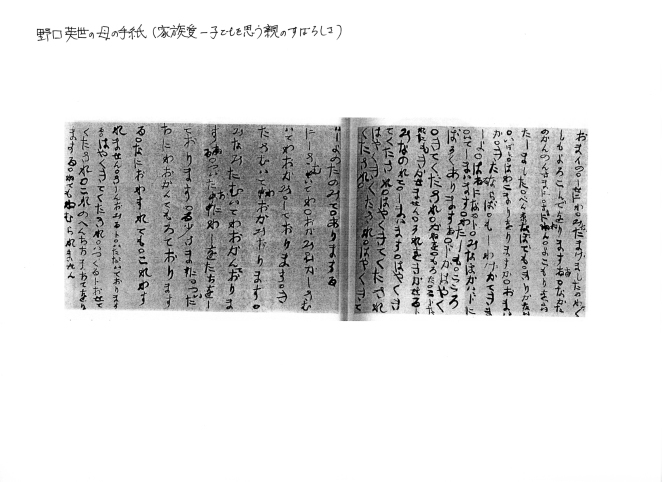 野口英世の母の手紙（家族愛―子どもを思う親のすばらしさ）
おまイの。しせにわ。みなたまけました。わたく
しもよろこんでをりまする。なかた
のかんのんさまに。さまにねん。よこもりを。いたし
ました。べん京なぼでも。きりかない
。いぼし。ほわこまりをりますか。おまい
か。きたならば。もしわけかてきま
しよ。はるになるト。みなほかいドに
。いてしまいます。わたしも。こころ
ぼそくありまする。ドかはやく
。きてくたされ。かねを。もろた。こト
たれにもきかせません。それをきかせるト
みなのれて。しまいます。はやくき
てくたされ。はやくきてくたされ
はやくきてくたされ。はやくきて
くたされ。
いしよのたのみて。ありまする
にしさむいてわ。おかみひかしさむ
いてわおかみ。しております。き
たさむいてわおかみおります。
みなみたむいてわおかんておりま
する。ついたちにわしをたちをし
ております。ゐ少さまに。ついた
ちにわおかんてもろております
る。なにおわすれても。これわす
れません。さしんおみるト。いただいております
る。はやくきてくたされ。いつくるトおせて
くたされ。これのへんちちまちてをり
まする。ねてもねむられません